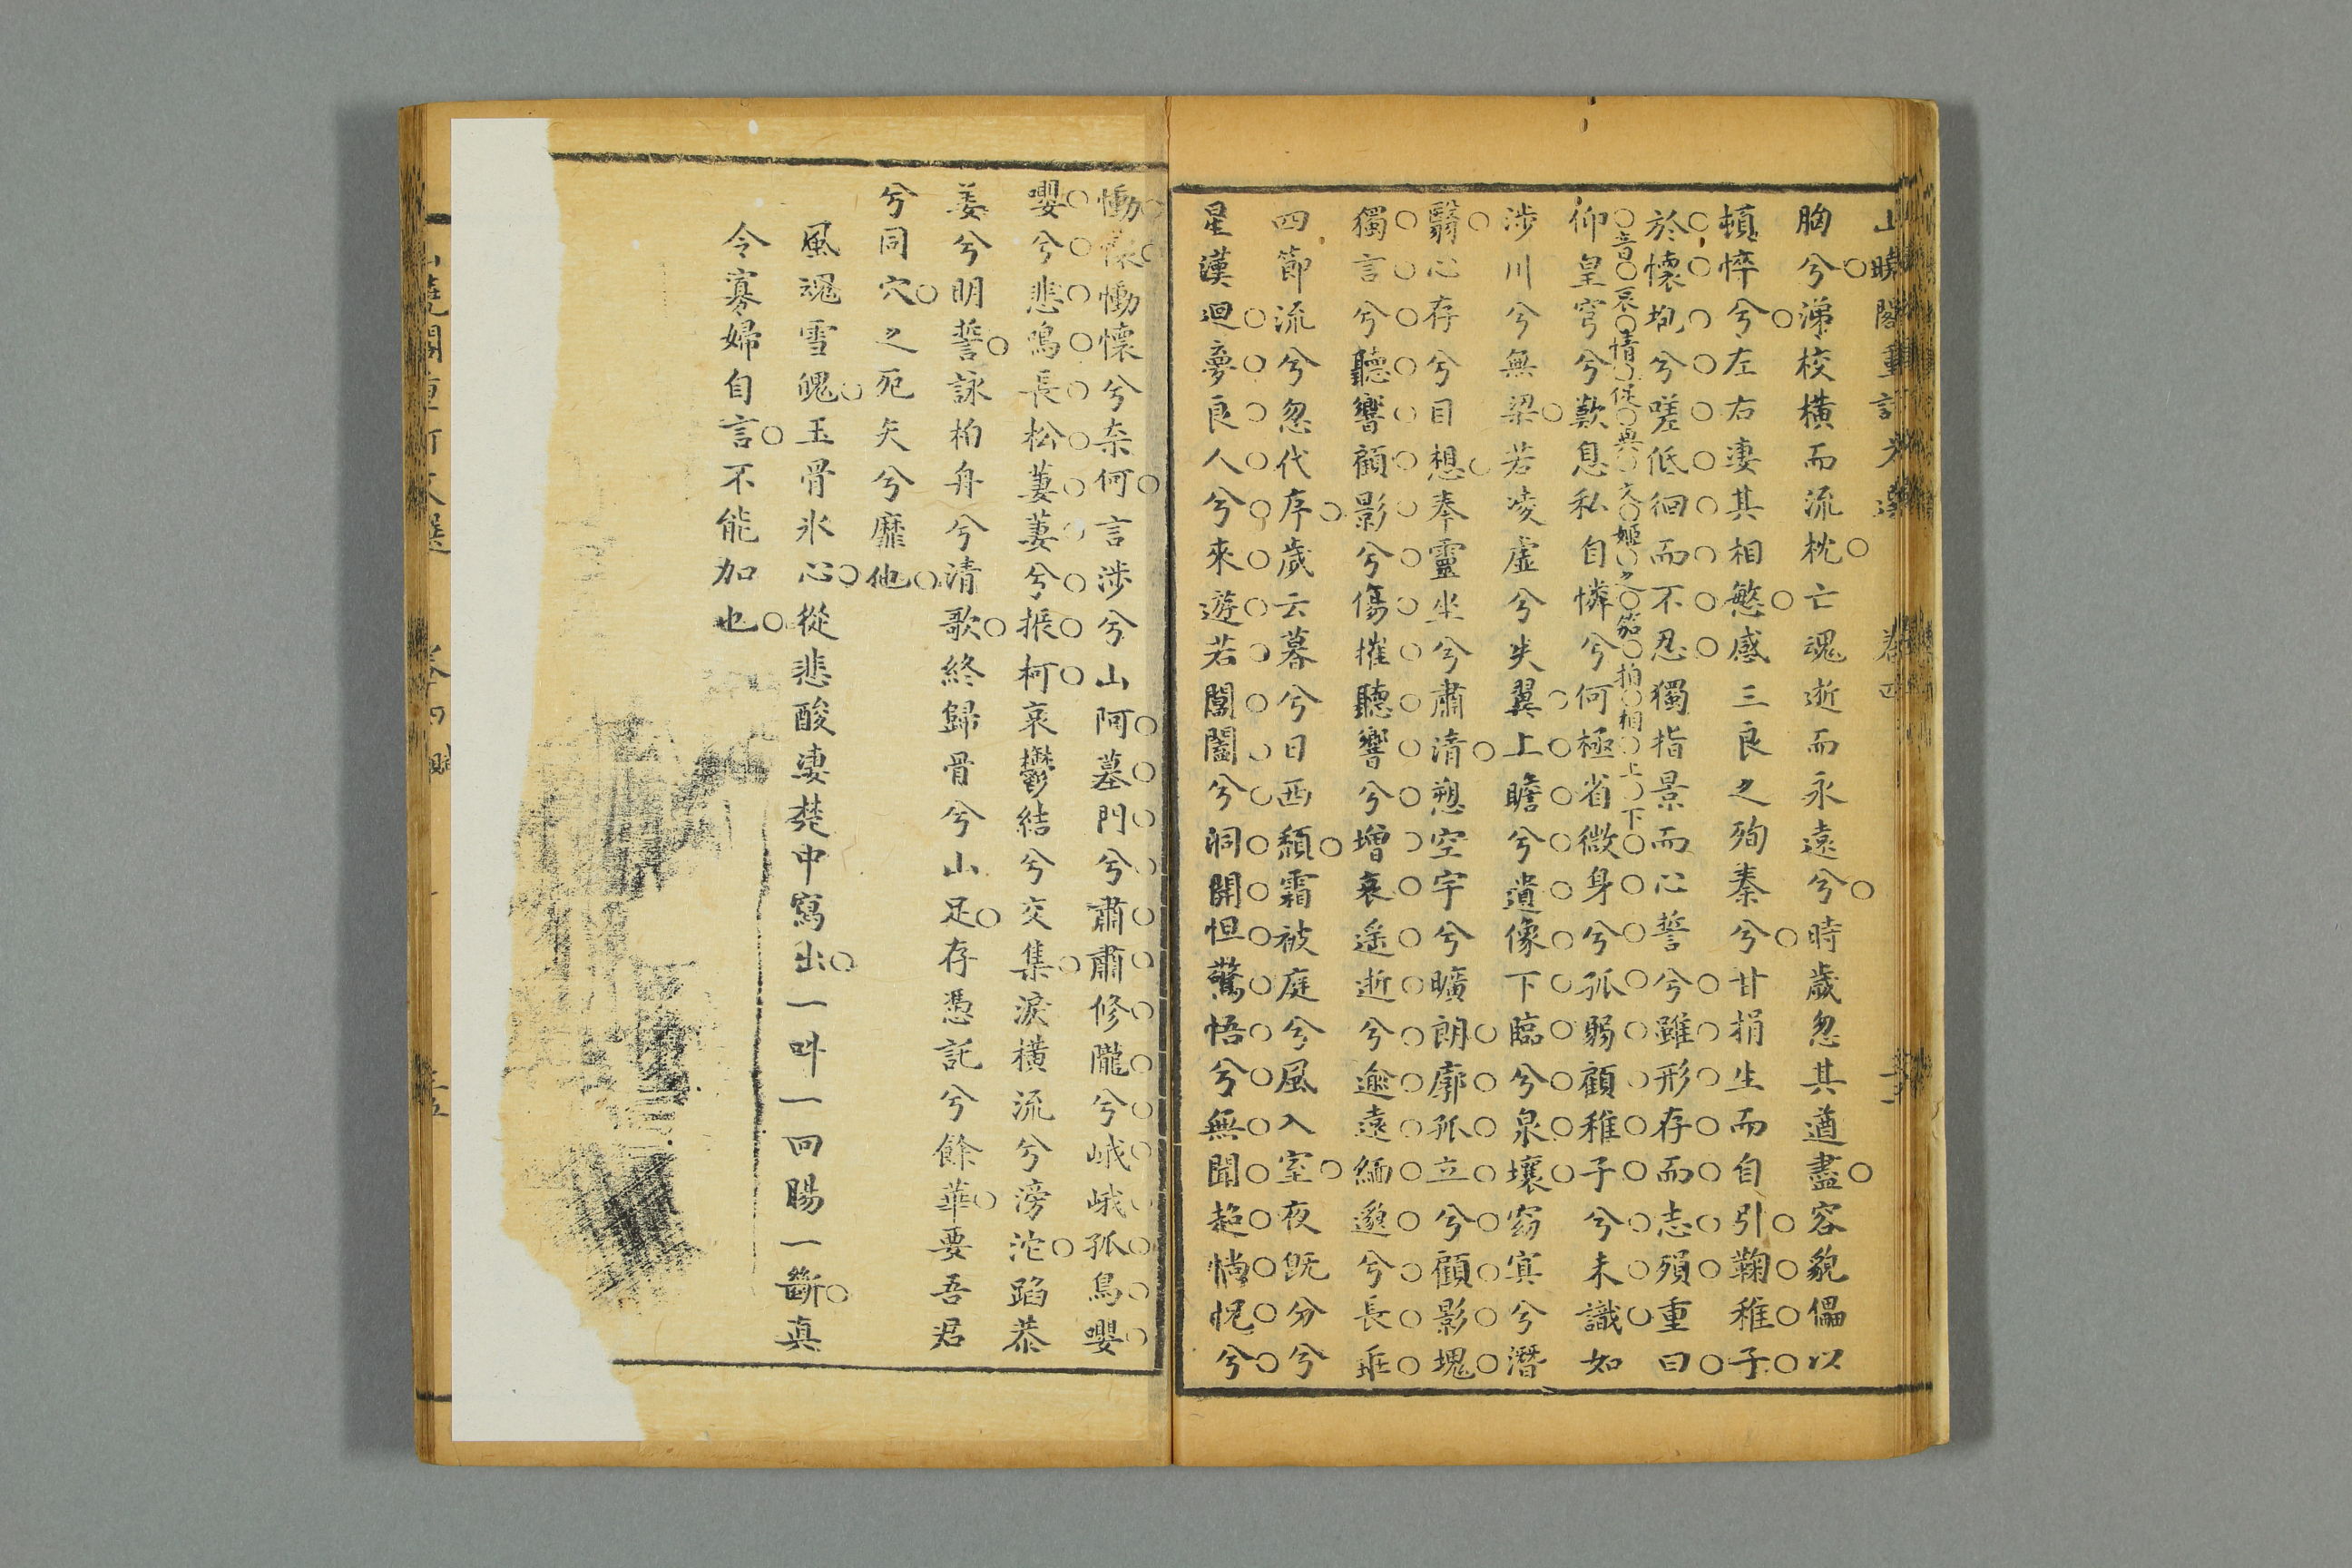 山曉閣重訂文選　卷四
胸兮涕校橫而流枕亡魂逝而永遠兮時歲忽其遒盡容貌儡以
頓悴兮左右淒其相慜感三良之殉秦兮甘捐生而自引鞠稚子
於懷抱兮嗟低徊而不忍獨指景而心誓兮雖形存而志殞重曰
音哀情促與文姬之笳拍相上下
仰皇穹兮歎息私自憐兮何極省微身兮孤弱顧稚子兮未識如
涉川兮無梁若凌虛兮失翼上瞻兮遺像下臨兮泉壤窈冥兮潛
翳心存兮目想奉靈坐兮肅清愬空宇兮曠朗廓孤立兮顧影塊
獨言兮聽響顧影兮傷摧聽響兮增哀遙逝兮逾遠緬邈兮長乖
四節流兮忽代序歲云暮兮日西頹霜被庭兮風入室夜既分兮
星漢迴夢良人兮來遊若閶闔兮洞開怛驚悟兮無聞超惝怳兮
慟懷慟懷兮奈何言涉兮山阿墓門兮肅肅修隴兮峨峨孤鳥嚶
嚶兮悲鳴長松萋萋兮振柯哀鬱結兮交集淚橫流兮滂沱蹈恭
姜兮明誓詠柏舟兮清歌終歸骨兮山足存憑託兮餘華要吾君
兮同穴之死矢兮靡他
風魂雪魄玉骨氷心從悲酸淒楚中寫出一叫一回腸一斷真
令寡婦自言不能加也